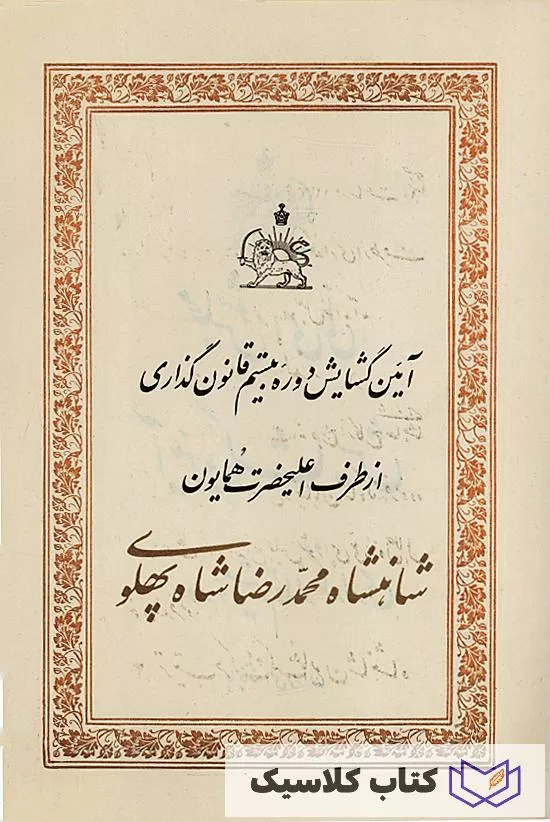 آیین گشایش دوره بیستم قانون گذاری
از طرف اعلیحضرت همایون
شاهنشاه محمد رضا شاه پهلوی
کتاب کلاسیک